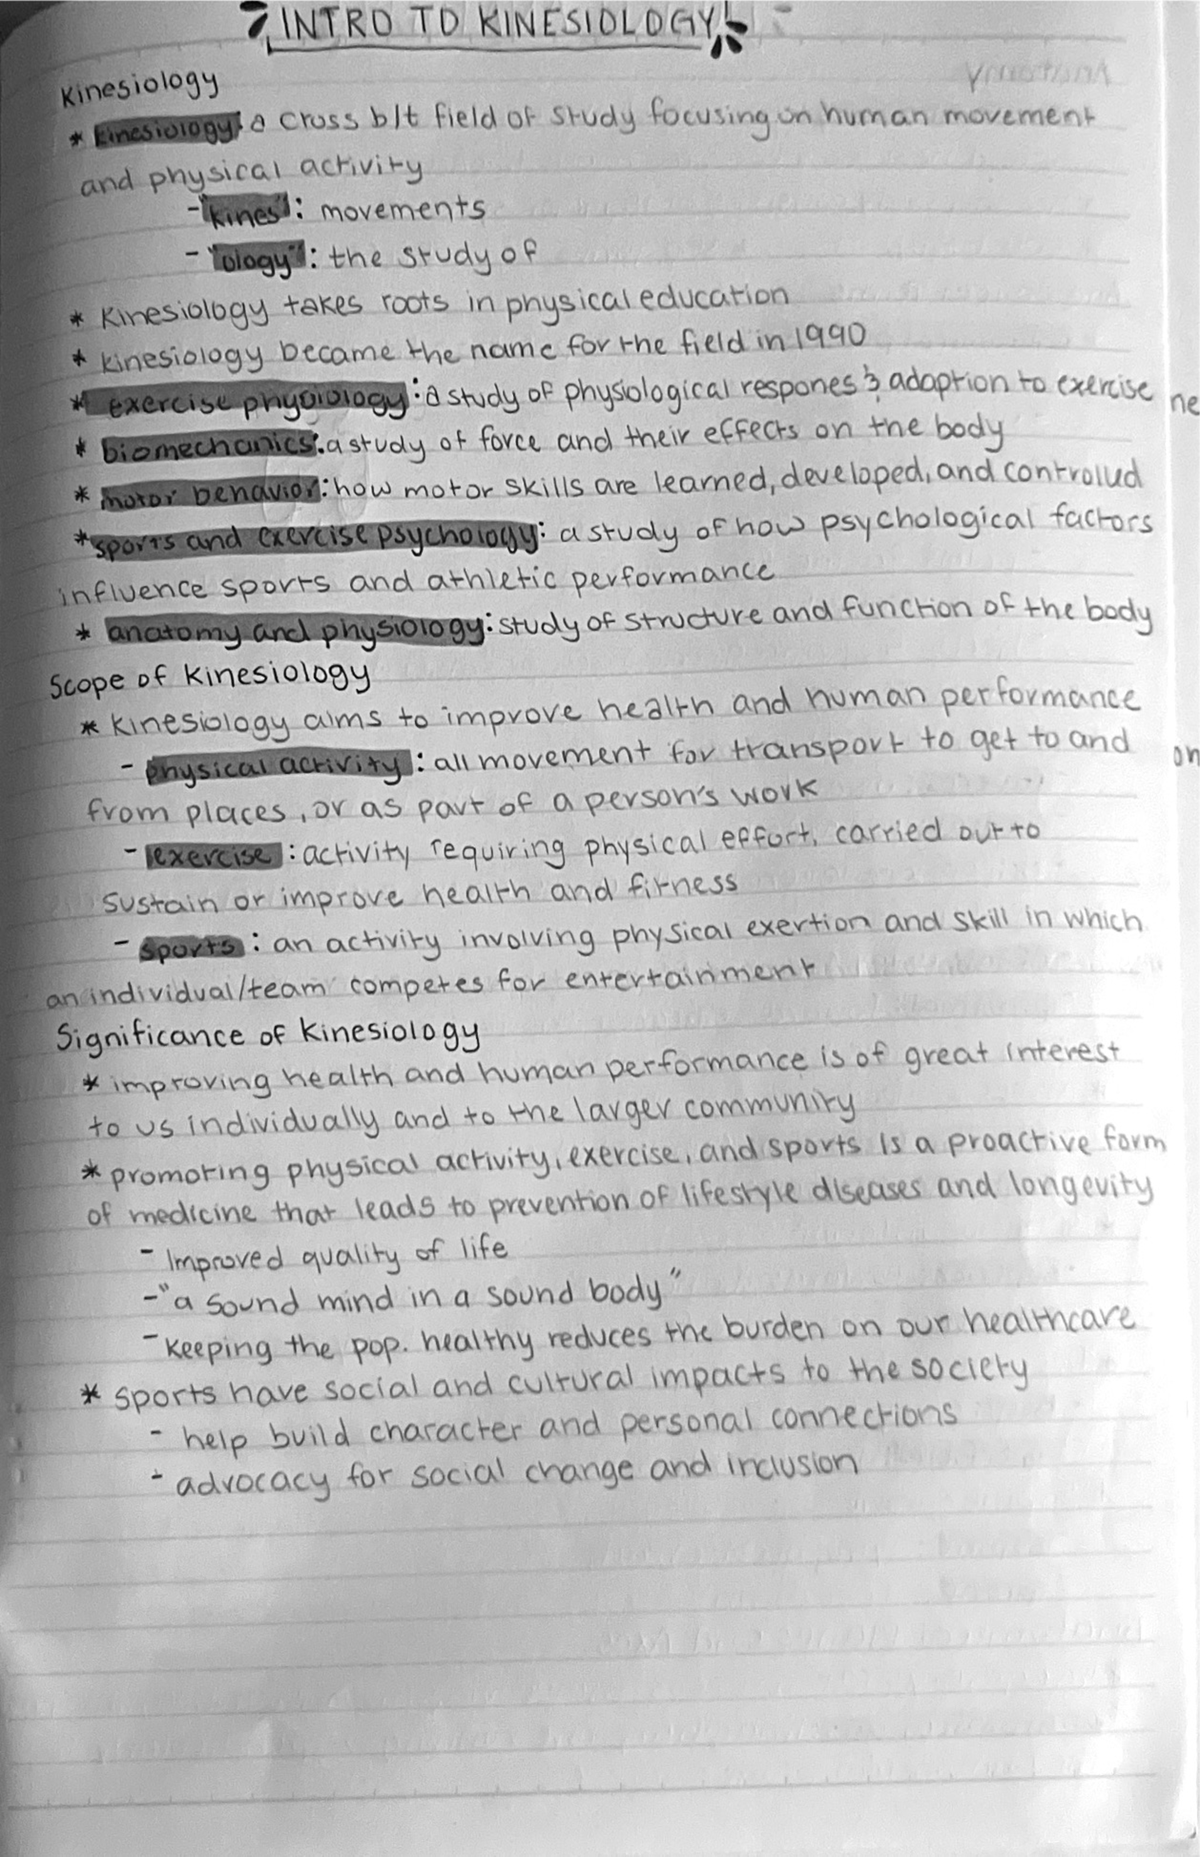 INTRO TO KINESIOLOGY
Kinesiology
* kinesiology: a cross b/t field of study focusing on human movement
and physical activity
- "kines": movements
- "ology": the study of
* Kinesiology takes roots in physical education
* kinesiology became the name for the field in 1990
* exercise physiology: a study of physiological respones & adaption to exercise
* biomechanics: a study of force and their effects on the body
* motor behavior: how motor skills are learned, developed, and controlled
* sports and exercise psychology: a study of how psychological factors
influence sports and athletic performance
* anatomy and physiology: study of structure and function of the body
Scope of Kinesiology
* Kinesiology aims to improve health and human performance
- physical activity: all movement for transport to get to and
from places, or as part of a person's work
- exercise: activity requiring physical effort, carried out to
sustain or improve health and fitness
- sports: an activity involving physical exertion and skill in which
an individual/team competes for entertainment
Significance of Kinesiology
* improving health and human performance is of great interest
to us individually and to the larger community
* promoting physical activity, exercise, and sports is a proactive form
of medicine that leads to prevention of lifestyle diseases and longevity
- Improved quality of life
- "a sound mind in a sound body"
- keeping the pop. healthy reduces the burden on our healthcare
* sports have social and cultural impacts to the society
- help build character and personal connections
- advocacy for social change and inclusion